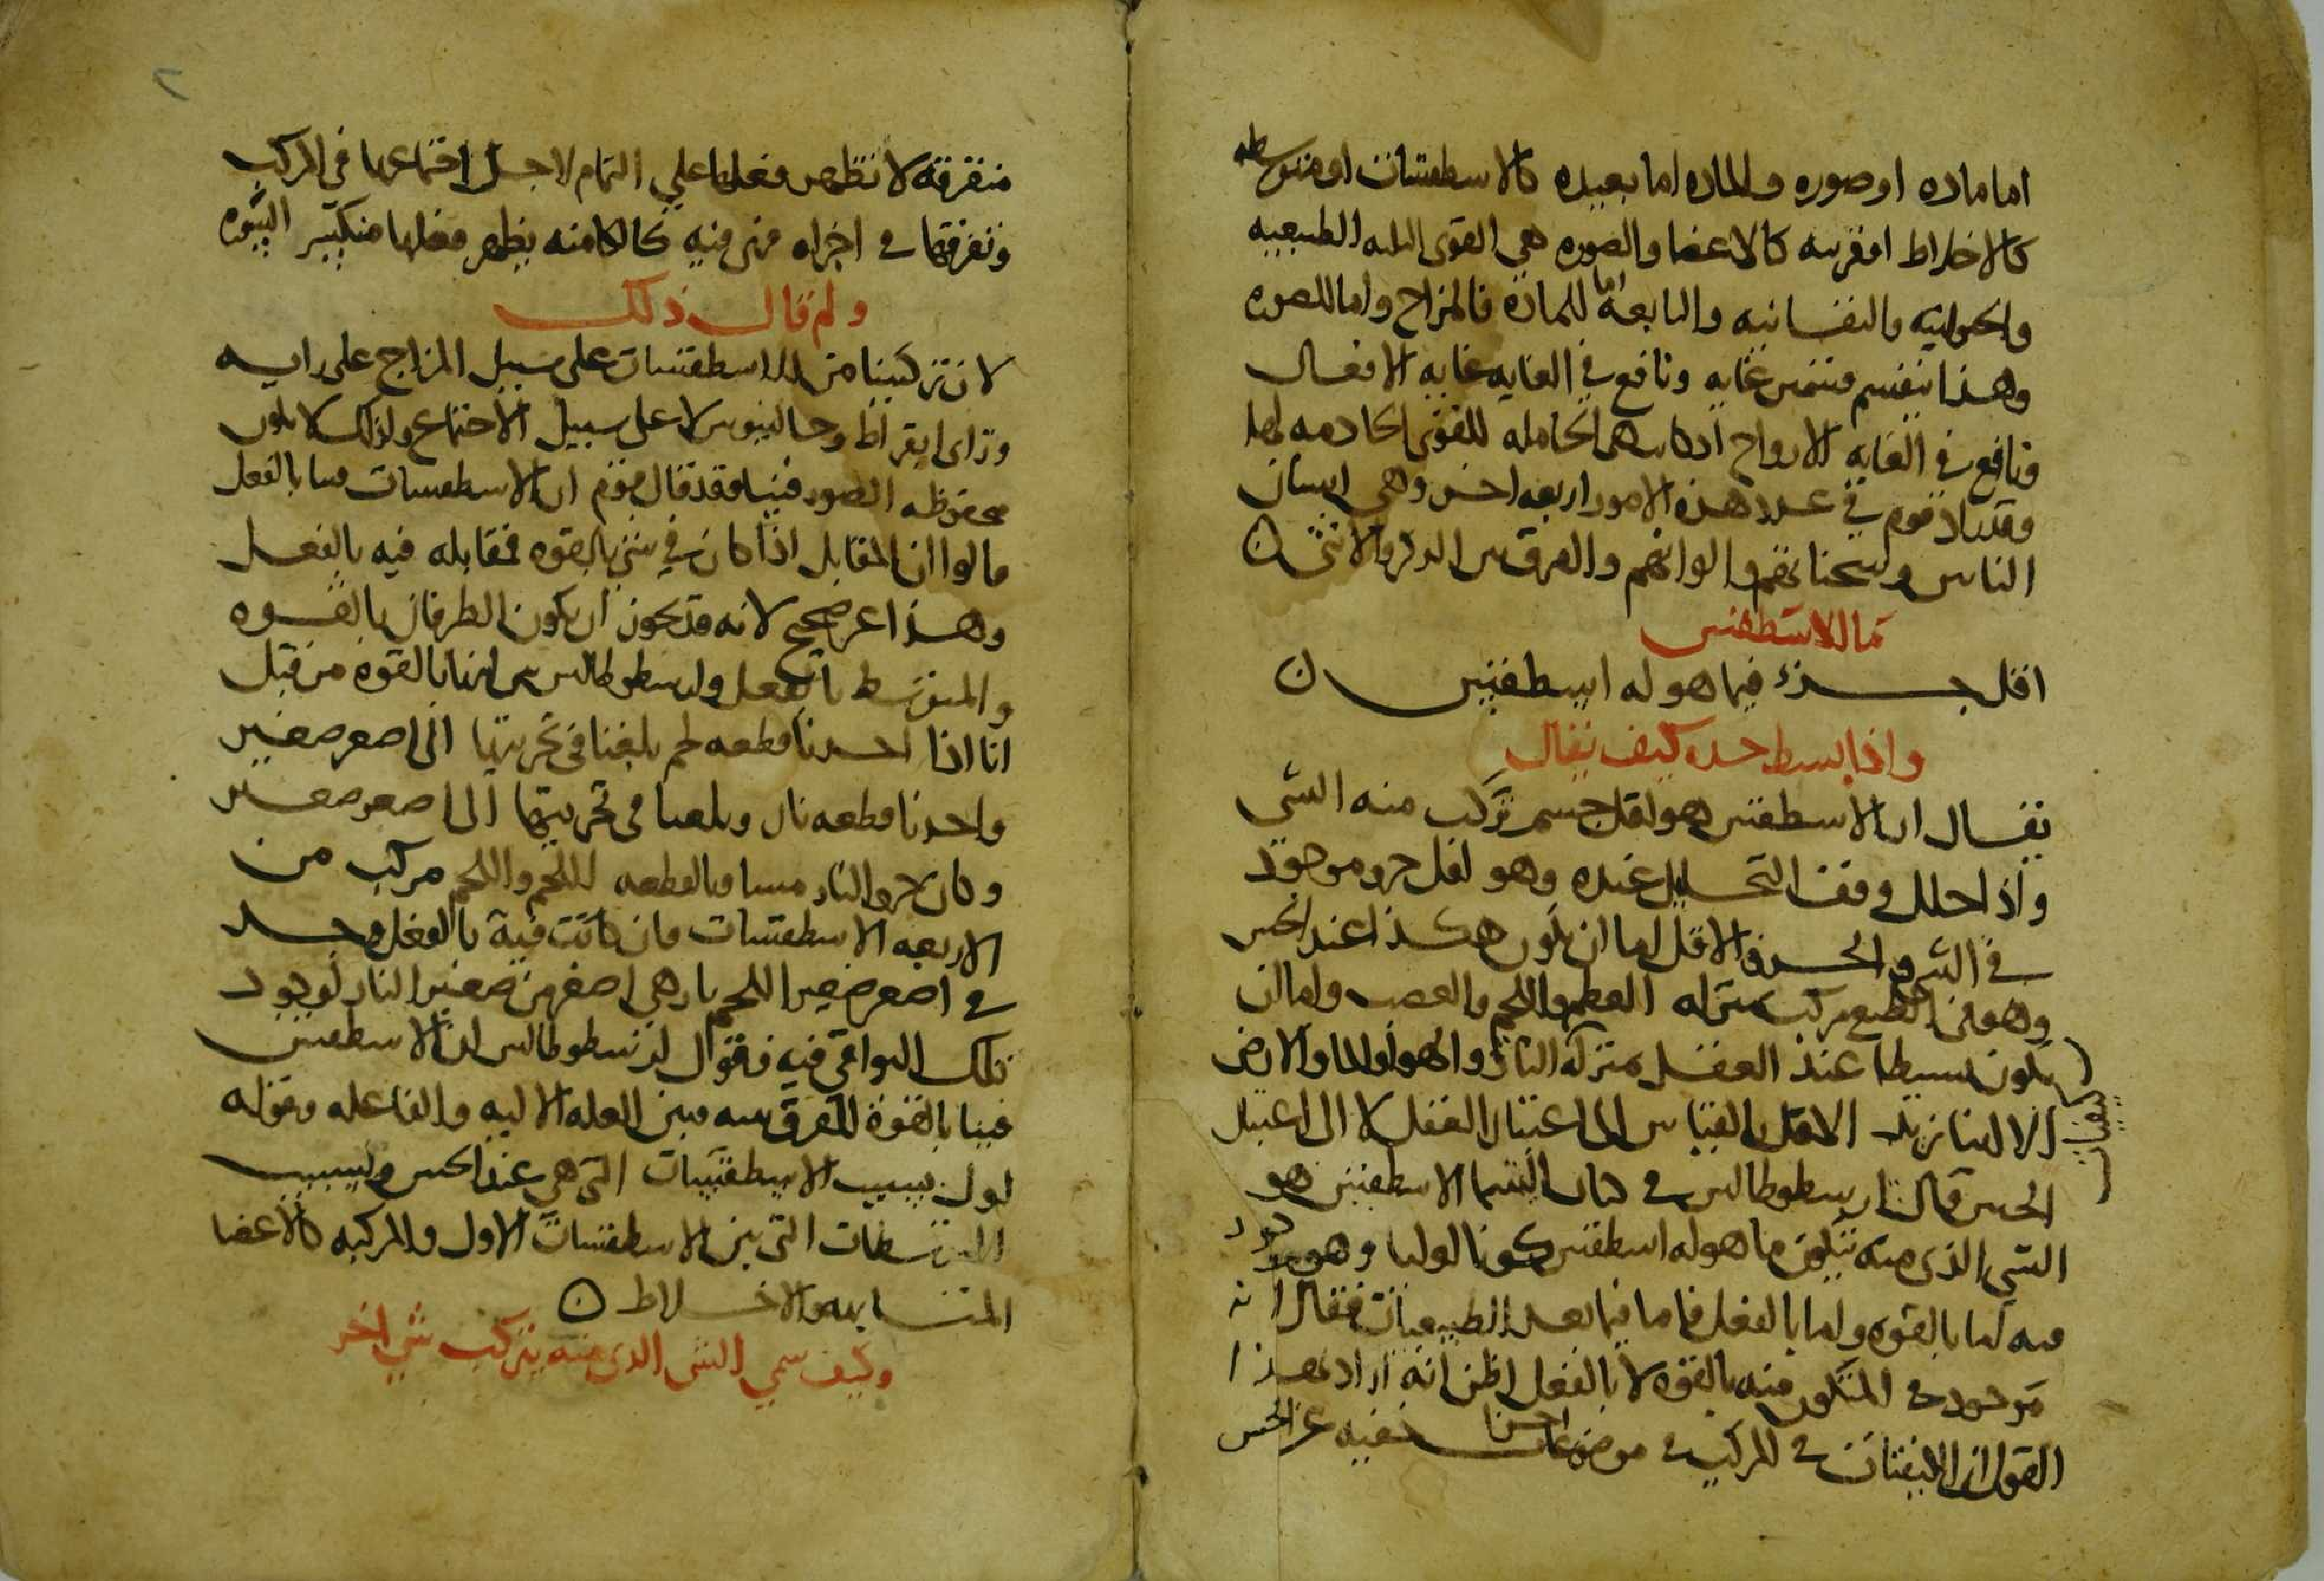 اما ماده او صوره والماده اما بعيده كالاسطقسات او متوسطه
كالاخلاط او قريبه كالاعضا والصوره هي القوى الثلثه الطبيعيه
والحيوانيه والنفسانيه والتابعه اما للماده فالمزاج واما للصوره
وهذا ينقسم قسمين غايه ونافع في الغايه غايه الافعال
ونافع في الغايه الارواح اذ كانت هي الحامله للقوى الخادمه لها
وقد زاد قوم في عدد هذه الامور اربعه اخر وهي اسنان
الناس وسحناتهم والوانهم والفرق بين الذكر والانثى ن
ما الاسطقس
اقل جزء فيما هو له اسطقس ن
واذا بسط حده كيف يقال
يقال ان الاسطقس هو اقل جسم تركب منه الشي
واذا حلل وقف التحليل عنده وهو اقل جزو موجود
في الشي والجزو الاقل اما ان يكون هكذا عند الحس
وهو في الطبع مركب بمنزله العظم واللحم والعصب واما ان
يكون بسيطا عند العقل بمنزله النار والهوا والما والارض
الا اننا نريد الاقل بالقياس الى اعتبار العقل لا الى اعتبار
الحس قال ارسطوطالس في كتاب السما الاسطقس هو
الشي الذي منه يتكون ما هو له اسطقس كونا اوليا وهو موجود
فيه اما بالقوه واما بالفعل فاما فيما بعد الطبيعيات فقال انه
موجود في المتكون منه بالقوه لا بالفعل اظن انه اراد بهذا
القول ان الكيفيات في المركب في موضوعات اخر خفيه عن الحس
متفرقه لا تظهر فعلها على التمام لاجل اجتماعها في المركب
وتفرقها في اجزاه فهي فيه كالكامنه يظهر فعلها منكسر السوره
ولم قال ذلك
لان تركيبنا من الاسطقسات على سبيل المزاج على رايه
وراى ابقراط وجالينوس لا على سبيل الاجتماع ولذلك لا يكون
محفوظه الصور فينا وقد قال قوم ان الاسطقسات فينا بالفعل
قالوا ان المقابل اذا كان في شي بالقوه فمقابله فيه بالفعل
وهذا غير صحيح لانه قد يجوز ان يكون الطرفان بالقوه
والمتوسط بالفعل وارسطوطالس يرى انها بالقوه من قبل
انا اذا اخذنا قطعه لحم بلغنا في تجزيتها الى اصغر صغير
واخذنا قطعه نار وبلغنا في تجزيتها الى اصغر صغير
وكان جزو النار مساويا لقطعه اللحم واللحم مركب من
الاربعه الاسطقسات فان كانت فيه بالفعل وجد
في اصغر صغير اللحم نار هي اصغر من صغير النار لوجود
تلك البواقي فيه فقول ارسطوطالس ان الاسطقس
فينا بالقوه للفرق بينه وبين العله الاليه والفاعله وقوله
اول بسبب الاسطقسات التي هي عند الحس وبسبب
المتوسطات التي بين الاسطقسات الاول والمركبه كالاعضا
المتشابهه والاخلاط ن
وكيف سمي الشي الذي منه يتركب شي اخر